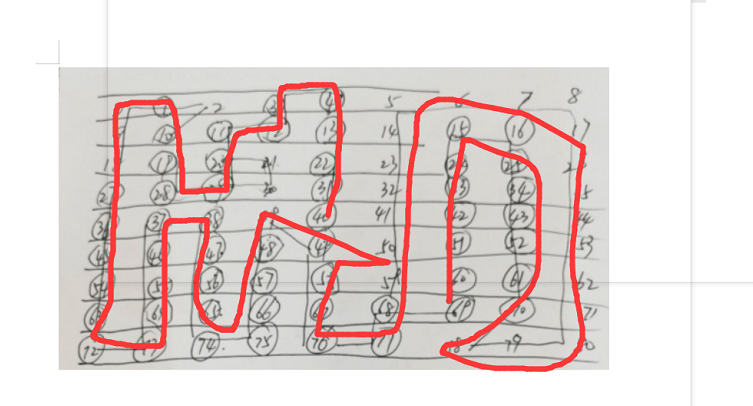 1 2 3 4 5 6 7 8
10 11 12 13 14 15 16 17
19 20 21 22 23
27 28 30 31 32 33 34
37 38 40 41 42 43 44
47 48 49 50 51 52 53
55 56 57 58 60 61 62
65 66 68 69 70 71
72 73 74 75 76 77 78 79